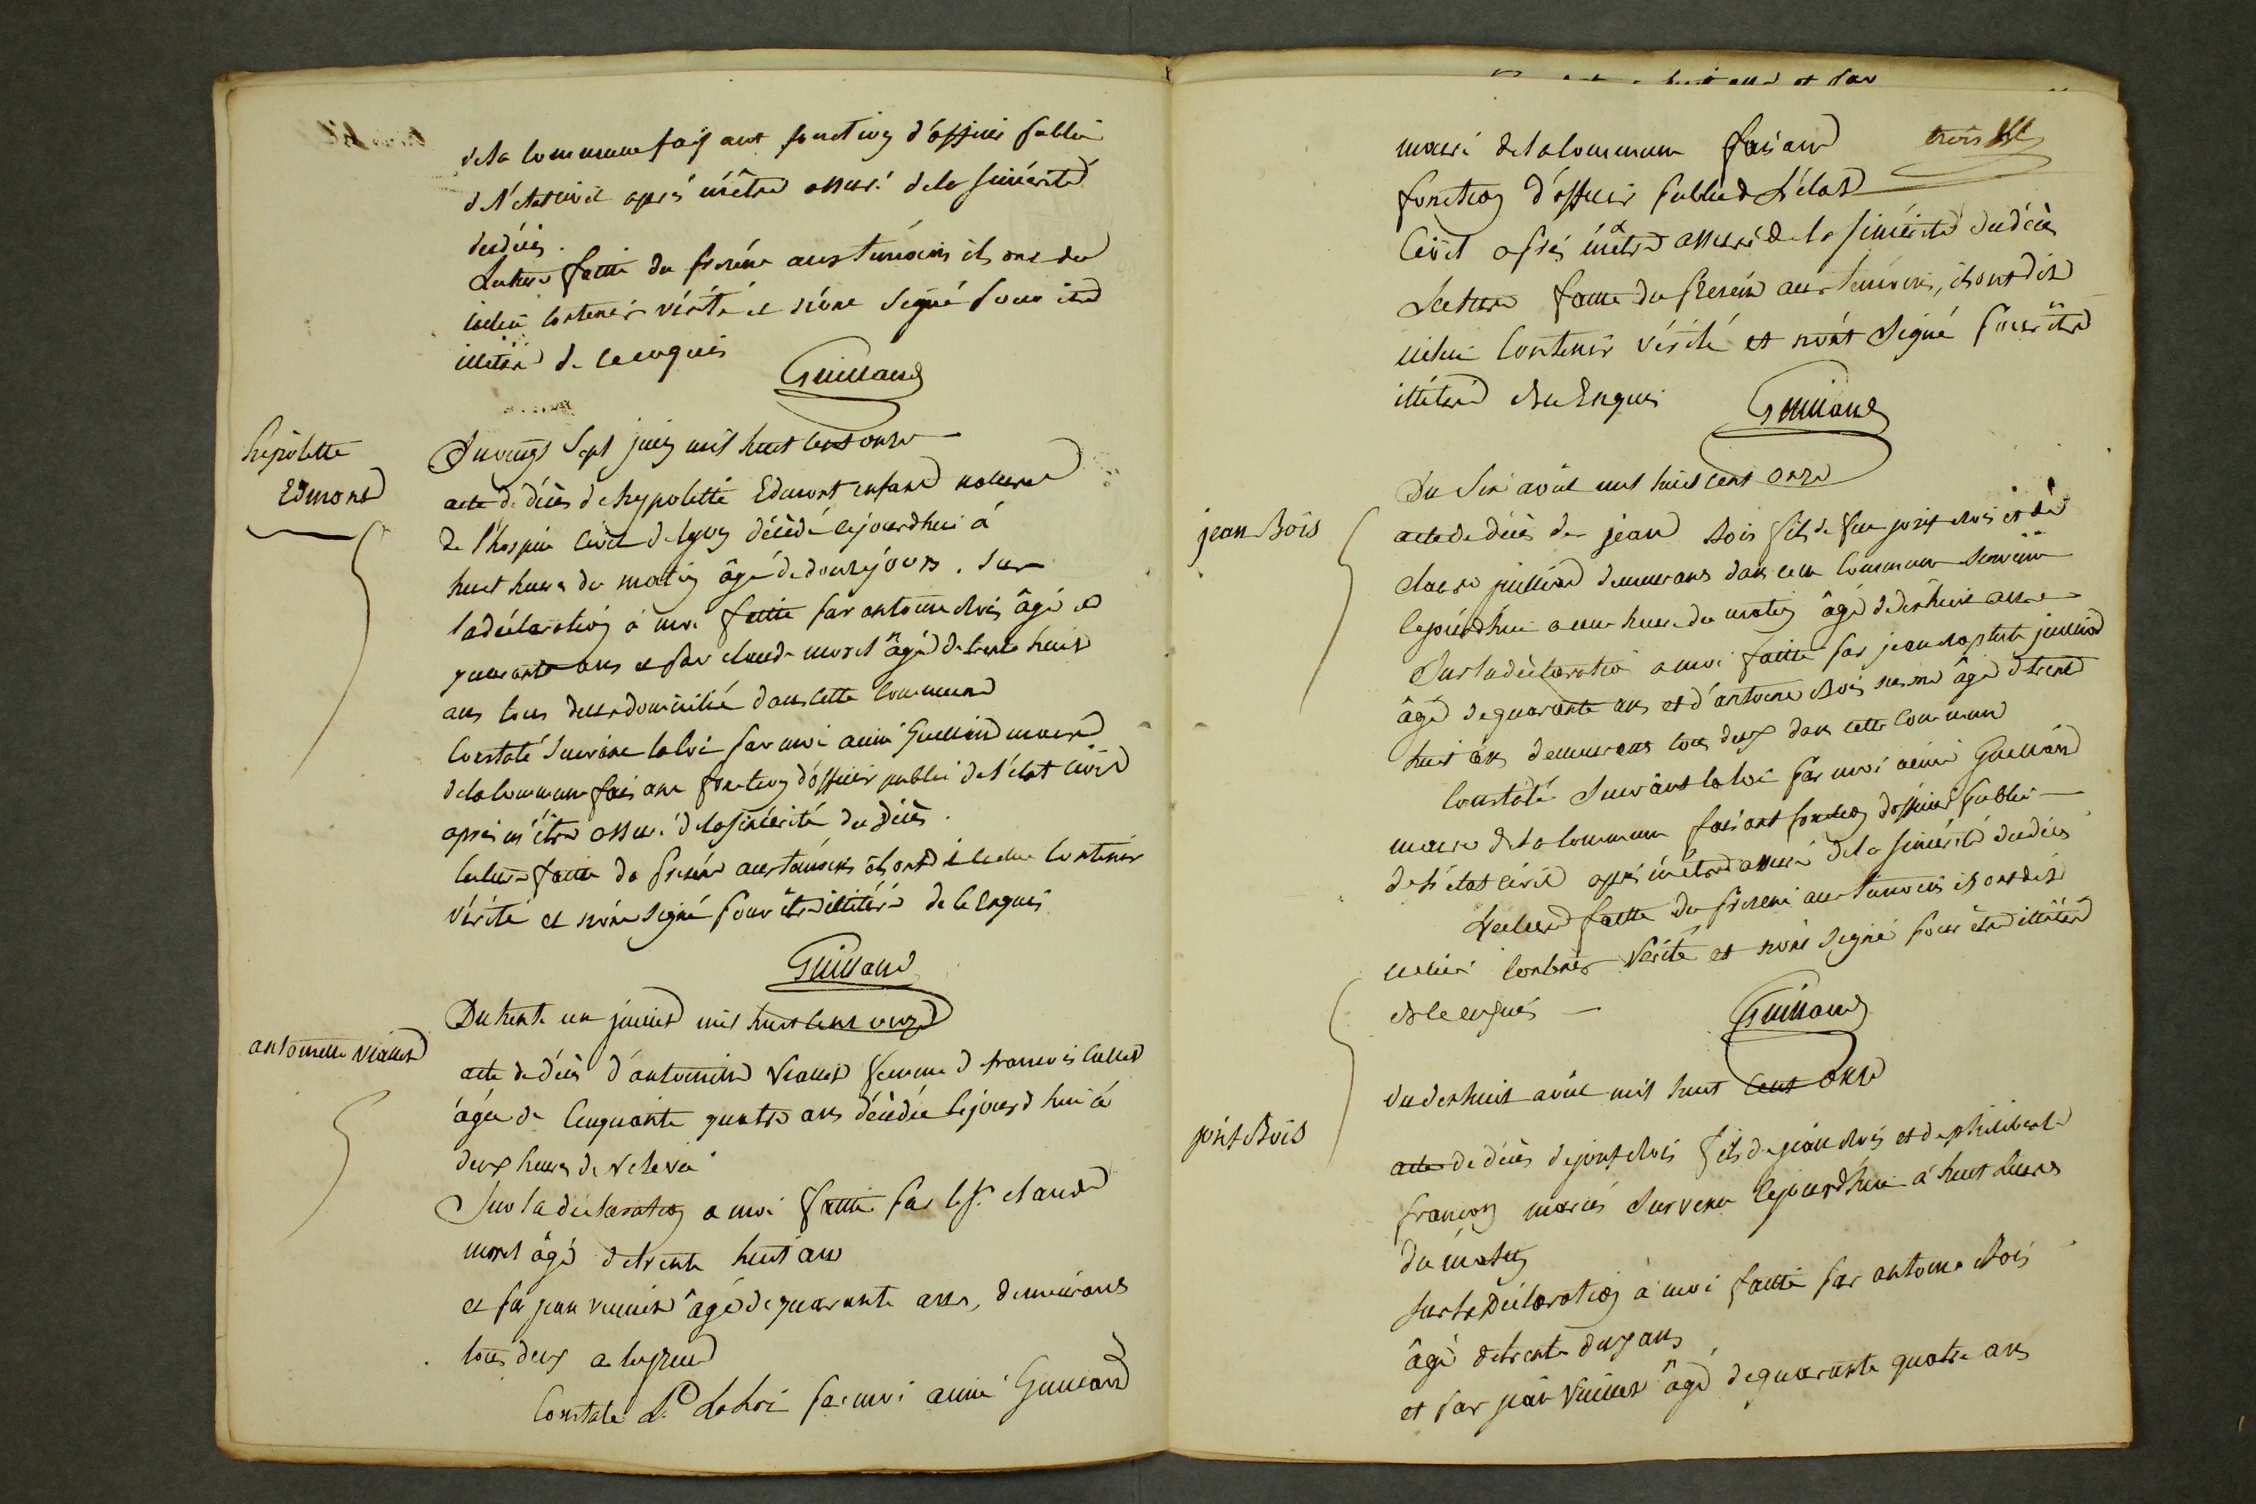 dela commune faisant fonction d'officier public
de l'état civil après m'être assuré dela sincérité
du décès.
Lecture faitte du présent aux témoins ils ont dit
icelui contenir vérité et n'ont signé pour être
illitéré de ce enquis
Guilland
hipolitte
Edmond
Du vingt sept juin mil huit cent onze
acte de décès de hypolitte Edmont enfant naturel
de l'hospice civil de lyon décédé cejourdhui à
huit heures du matin âgé de douze jours. sur
la déclaration à moi faitte par antoine Bois âgé de
quarante ans et par claude morel âgé de trente huit
ans tous deux domicilié dans cette commune
Constaté suivant la loi par moi aimé Guilland maire
dela commune faisant fonction d'officier public de l'état civil
après m'être assuré dela sincérité du décès.
lecture faitte du présent aux témoins ils ont dit icelui contenir
vérité et n'ont signé pour être illitéré de ce enquis
Guilland
antoinette Viallet
Du trente un juillet mil huit cent onze
acte de décès d'antoinette Viallet femme de francois
âgée de cinquante quatre ans décédée cejourd hui à
deux heures de relevée
Sur la déclaration a moi faitte par le sr. claude
morel âgé de trente huit ans
et par jean âgé de quarante ans, demeurans
tous deux a
Constaté st. la loi par moi aimé Guilland
maire dela commune faisant
trois
fonction d'officier public de L'état
Civil après m'être assuré de la sincérité du décès
Lecture faitte du présent aux témoins, ils ont dit
icelui contenir vérité et n'ont signé pour être
illitéré de ce Enquis
Guilland
jean Bois
Du six août mil huit cent onze
acte de décès de jean Bois fils de feu josept Bois et de
claire jullind demeurans dans cette commune survenu
cejourdhui a une heure du matin âgé de dixhuit ans
Sur la déclaration a moi faitte par jean baptiste
âgé de quarante ans et d'antoine Bois âgé de trente
huit ans demeurans tous deux dans cette commune
Constaté suivant la loi par moi aimé Guilland
maire dela commune faisant fonction d'officier public
de l'état civil après m'être assuré dela sincérité du décès
Lecture faitte du présent aux témoins ils ont dit
icelui contenir vérité et n'ont signé pour être illitéré
de ce enquis
Guilland
josept Bois
du dixhuit août mil huit cent onze
acte de décès de josept Bois fils de jean Bois et de philiberte
françon mariés survenu cejourdhui à huit heures
du matin
sur la Déclaration à moi faitte par antoine Bois
âgé de trente deux ans
et par jean âgé de quarante quatre ans